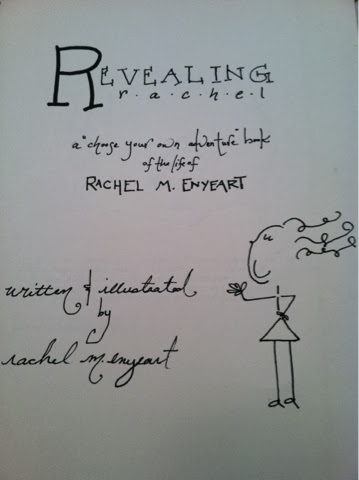 REVEALING
r·a·c·h·e·l
a "choose your own adventure" book
of the life of
RACHEL M. ENYEART
written & illustrated
by
rachel m. enyeart